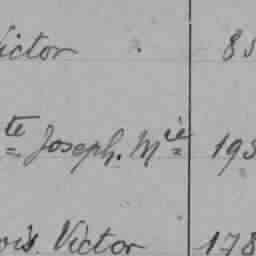 ictor 85
te Joseph. Mie 193
ois Victor 178